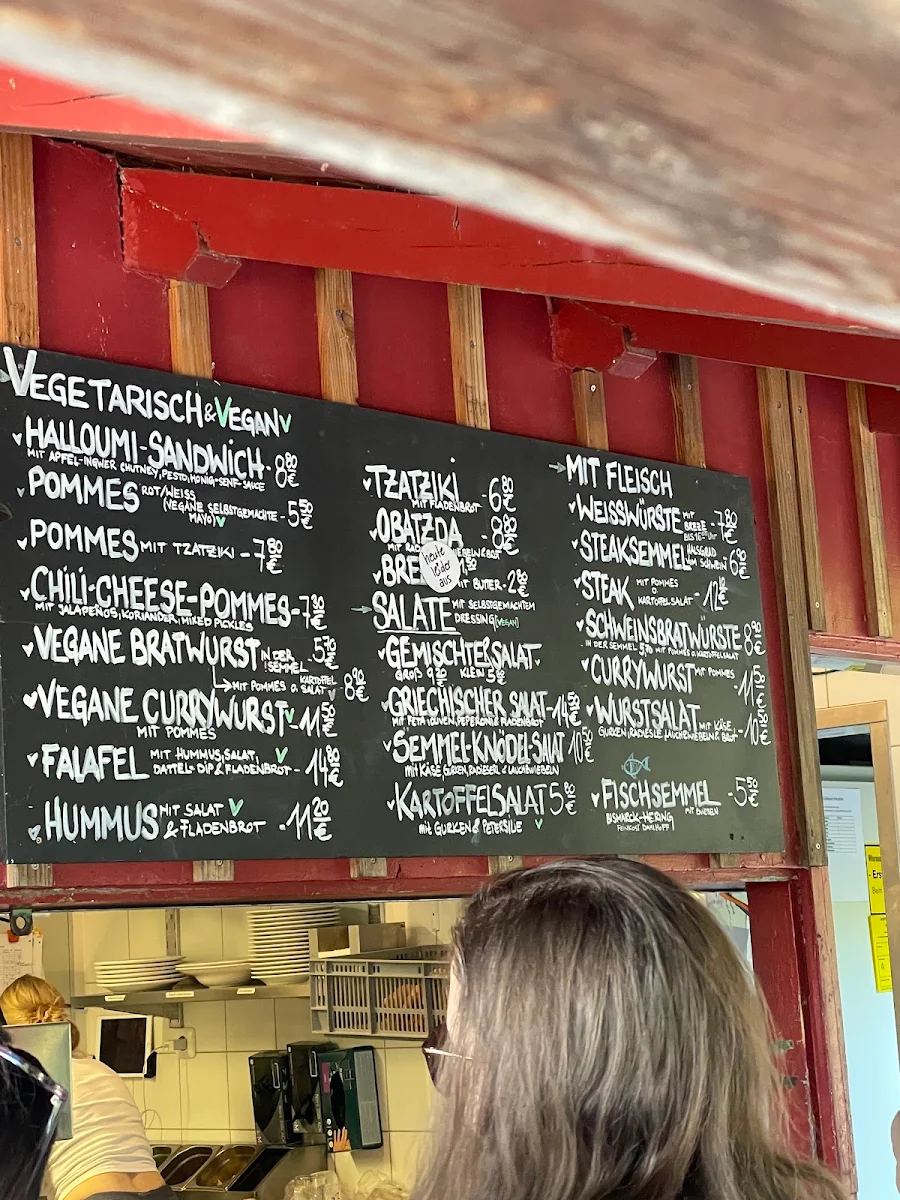 VEGETARISCH & VEGAN V
HALLOUMI-SANDWICH - 8 80 €
MIT APFEL-INGWER CHUTNEY, PESTO, HONIG-SENF-SAUCE
POMMES ROT/WEISS
(VEGANE SELBSTGEMACHTE MAYO) V - 5 50 €
POMMES MIT TZATZIKI - 7 80 €
CHILI-CHEESE-POMMES - 7 80 €
MIT JALAPEÑOS, KORIANDER, MIXED PICKLES
VEGANE BRATWURST IN DER SEMMEL - 5 70 €
MIT POMMES O. KARTOFFELSALAT V 8 90 €
VEGANE CURRYWURST V - 11 50 €
MIT POMMES
FALAFEL MIT HUMMUS, SALAT, V
DATTEL-DIP & FLADENBROT - 14 80 €
HUMMUS MIT SALAT V
& FLADENBROT - 11 20 €
TZATZIKI - 6 80 €
MIT FLADENBROT
OBATZDA - 8 80 €
MIT
BRE MIT BUTTER - 2 80 €
Heute leider aus
SALATE MIT SELBSTGEMACHTEM
DRESSING (VEGAN)
GEMISCHTER SALAT
GROSS 9 20 € KLEIN 5 80 €
GRIECHISCHER SALAT - 14 50 €
MIT FETA, OLIVEN, PEPERONI & FLADENBROT
SEMMEL-KNÖDEL-SALAT 10 50 €
MIT KÄSE, GURKEN, RADIESERL & LAUCHZWIEBELN
KARTOFFELSALAT 5 80 €
MIT GURKEN & PETERSILIE V
MIT FLEISCH
WEISSWÜRSTE MIT BREZE - 7 80 €
BIS 16 00 UHR
STEAKSEMMEL HALSGRAD VOM SCHWEIN - 6 90 €
STEAK MIT POMMES
O. KARTOFFELSALAT -
SCHWEINSBRATWÜRSTE 8 90 €
IN DER SEMMEL 5 70 MIT POMMES O. KARTOFFELSALAT
CURRYWURST MIT POMMES - 11 50 €
WURSTSALAT MIT KÄSE,
GURKEN, RADIESLE, LAUCHZWIEBELN & BROT - 10 80 €
FISCHSEMMEL - 5 50 €
BISMARCK-HERING MIT ZWIEBELN
FEINKOST DAHLHOFF